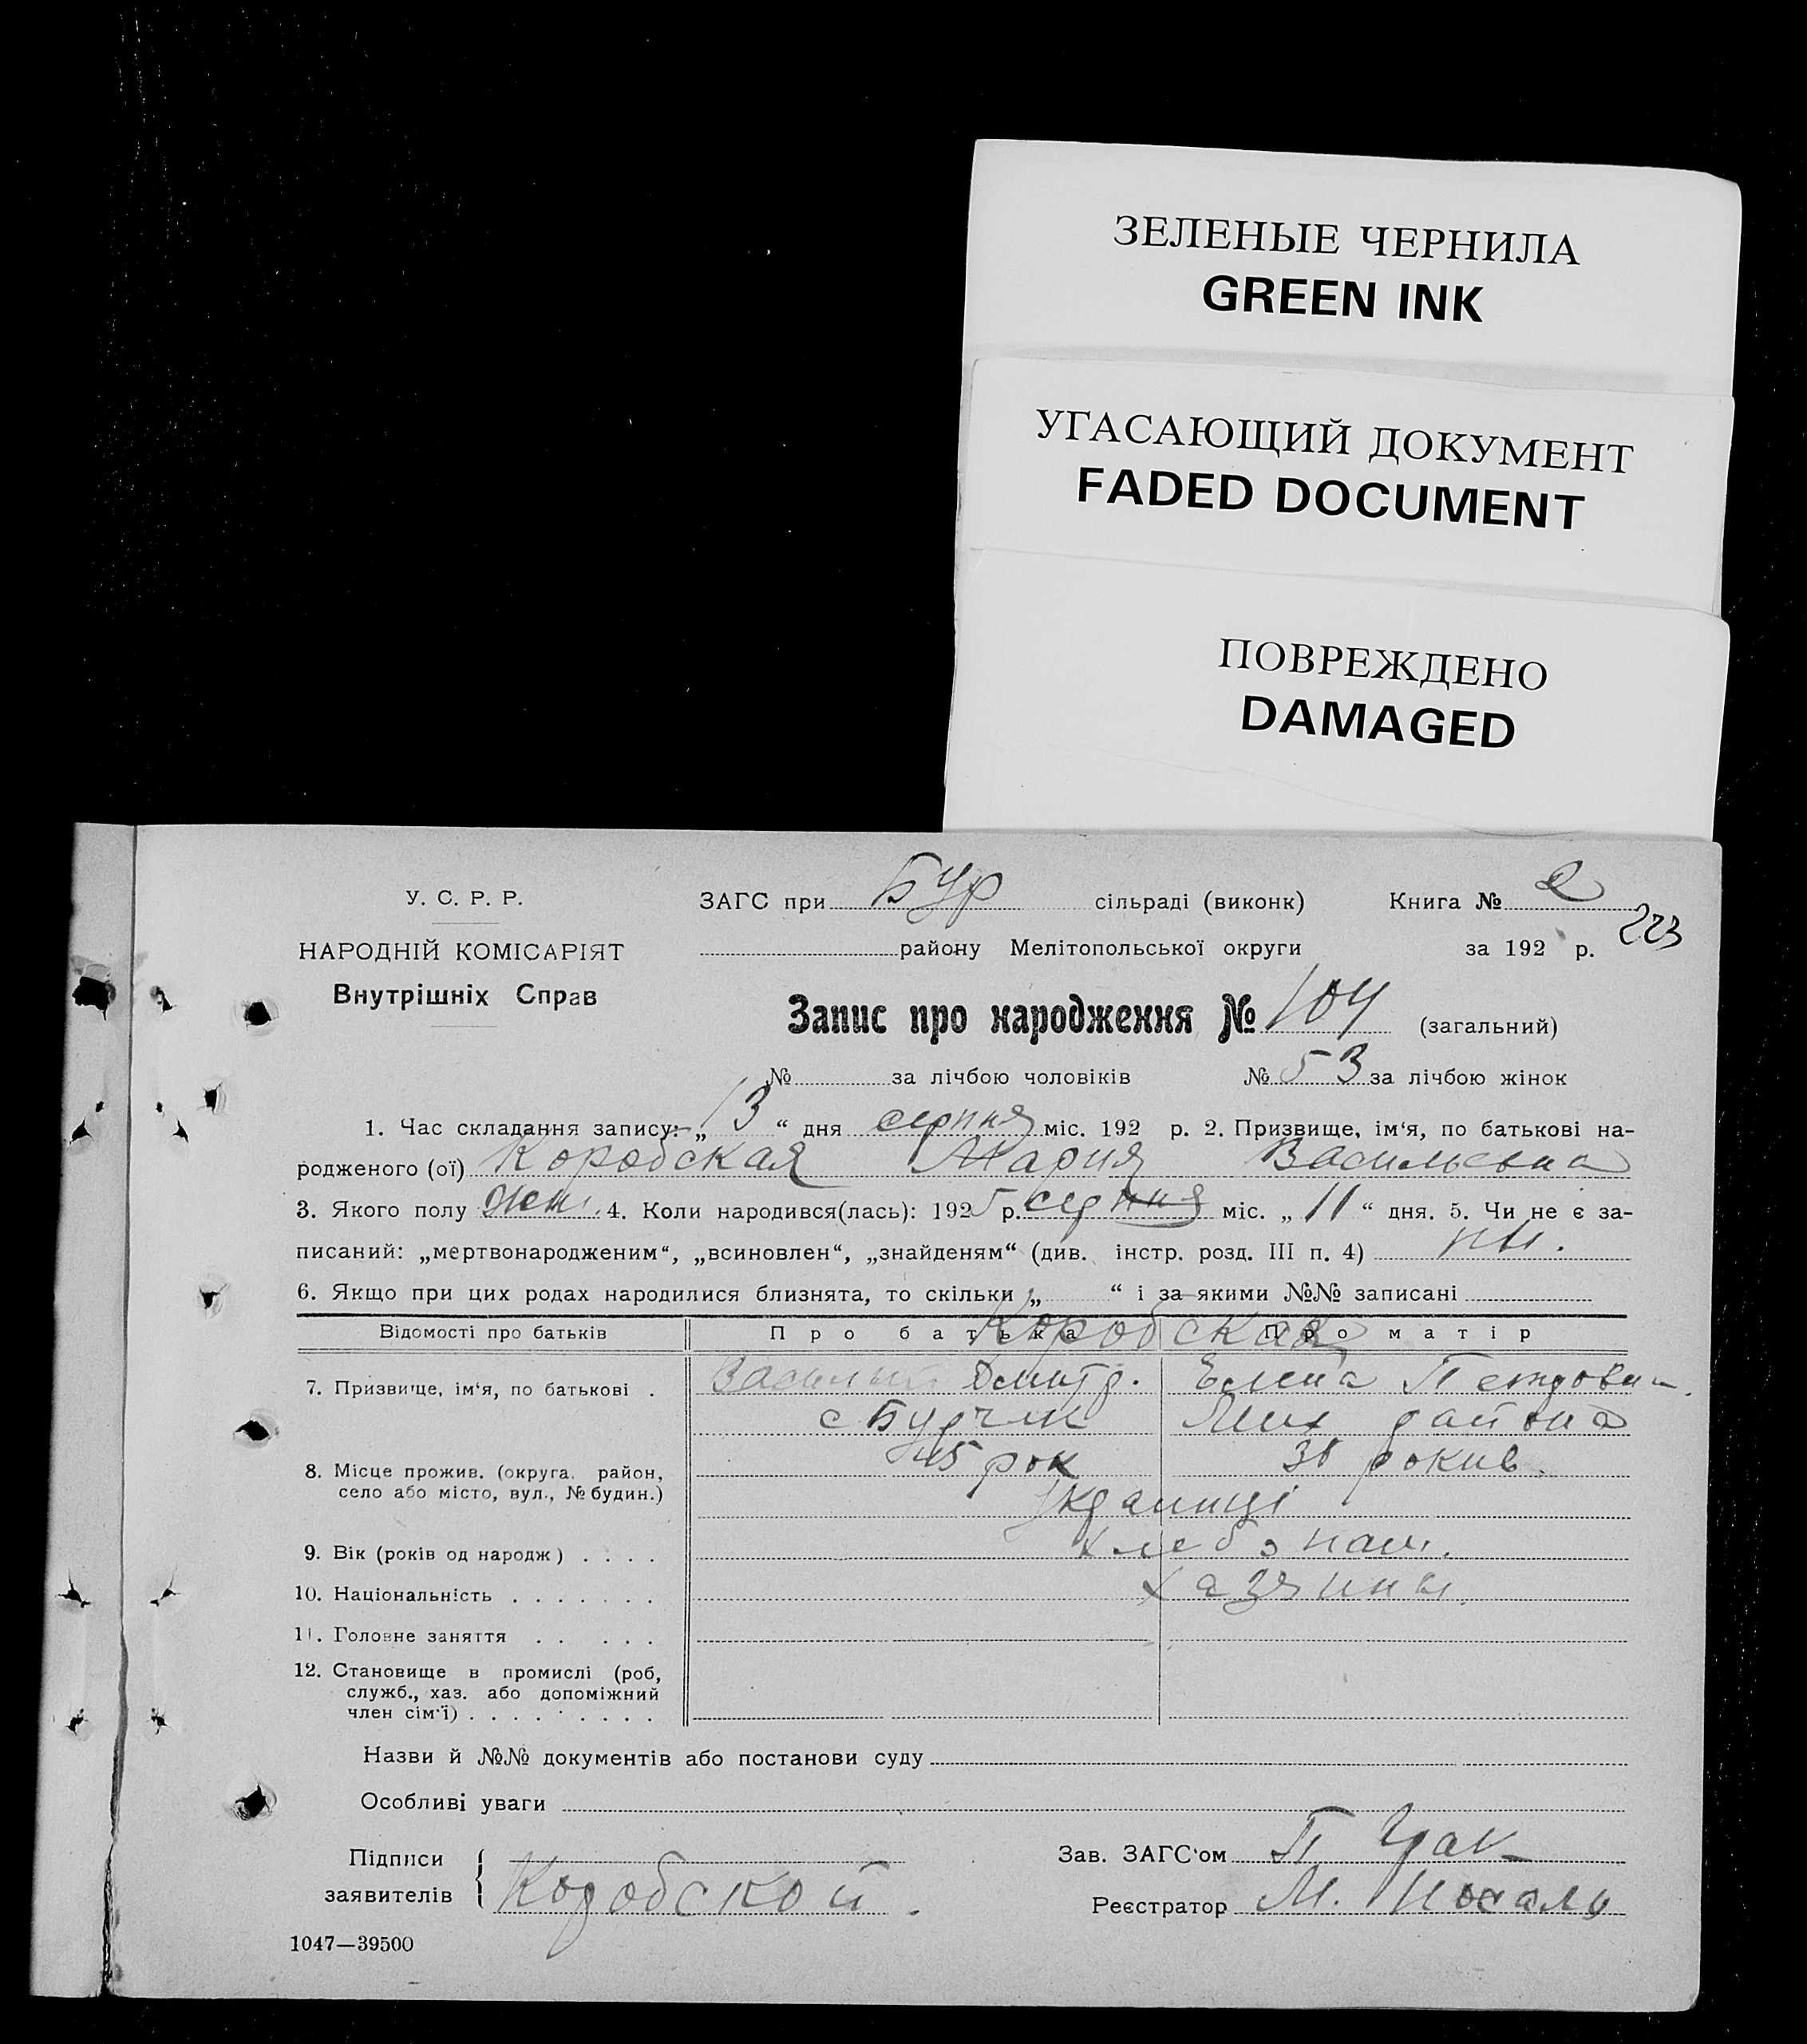 ЗЕЛЕНЫЕ ЧЕРНИЛА
GREEN INK
УГАСАЮЩИЙ ДОКУМЕНТ
FADED DOCUMENT
ПОВРЕЖДЕНО
DAMAGED
У. С. Р. Р.
НАРОДНІЙ КОМІСАРІЯТ
Внутрішніх Справ
ЗАГС при Бур сільраді (виконк) Книга № 2
району Мелітопольської округи за 192 р.
223
Запис про народження № 104 (загальний)
№ за лічбою чоловіків № 53 за лічбою жінок
1. Час складання запису: „13“ дня серпня міс. 192 р. 2. Призвище, ім‘я, по батькові на-
родженого (ої) Коробская Мария Васильевна
3. Якого полу жен. 4. Коли народився(лась): 1925 р. серпня міс. „11“ дня. 5. Чи не є за-
писаний: „мертвонародженим“, „всиновлен“, „знайденям“ (див. інстр. розд. III п. 4)
6. Якщо при цих родах народилися близнята, то скільки „ “ і за якими №№ записані
Відомості про батьків Про батька Про матір
Коробская
7. Призвище, ім‘я, по батькові . Василий Дмитр. Елена Петровн.
с Бурчак района
8. Місце прожив. (округа, район,
село або місто, вул., № будин.)
45 рок 38 рокив.
Українці
9. Вік (років од народж) . . . .
хлебопаш.
10. Національність . . . . . . .
хазяины.
11. Головне заняття . . . . .
12. Становище в промислі (роб,
служб., хаз. або допоміжний
член сім‘ї) . . . . . . . . .
Назви й №№ документів або постанови суду
Особливі уваги
Підписи
заявителів
Коробской.
Зав. ЗАГС‘ом П
Реєстратор М.
1047—39500